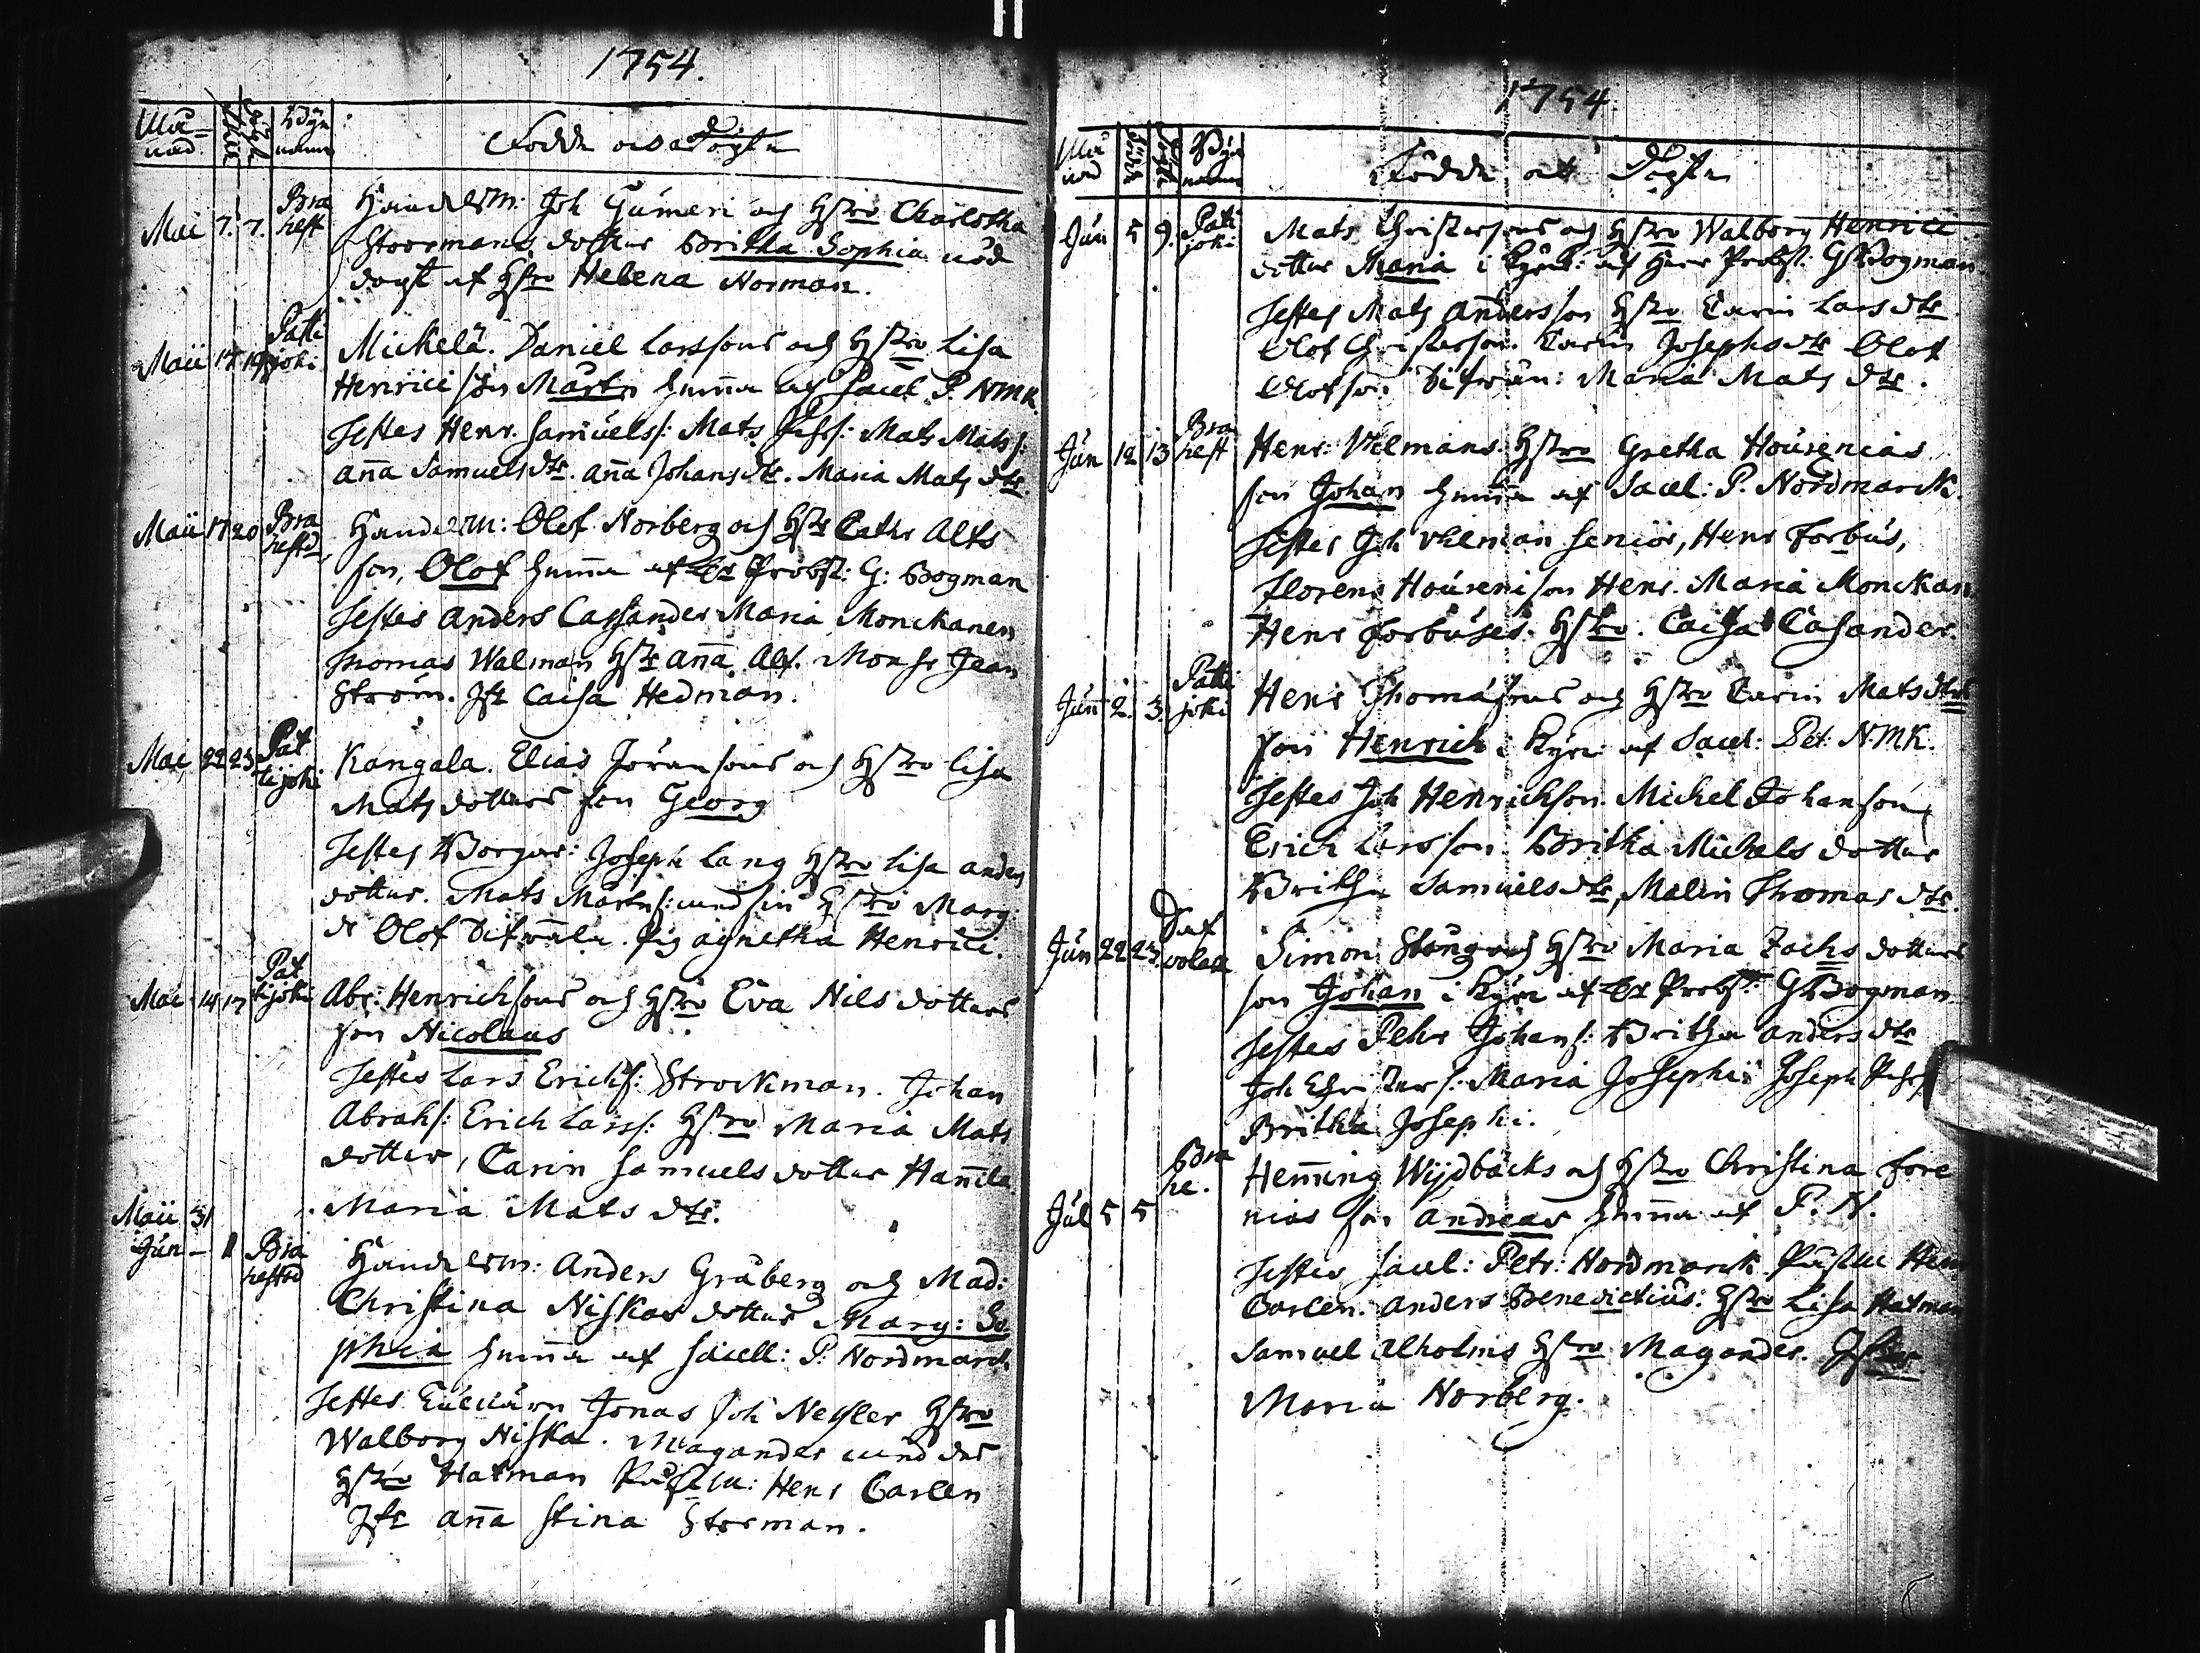 1754.
Må-
nad. födde döpte Byn
namn Födde och Döpte
Mai 7. 7. Bra
hest Handelsm: Joh Gumeri och Hstro Charlotha
Stoormans dotter Britha Sophia nöd
döpt af Hstro Helena Norman.
Maii 17 19 Patti
joki Mickelä. Daniel Larssons och Hstro Lisa
Henrici son Mårten hemma af Sacel. P. NMK.
Testes Henr. Samuels: Mats Pehrs: Mats Mats:
Anna Samuels dtr. Anna Johans dtr. Maria Mats dtr.
Maii 17 20 Bra
hestd. Handelsm: Olof Norberg och Hstr Cathr Alts
son, Olof hemma af Hr Probst: G: Bogman
Testes Anders Cassander Maria Monckanen
Thomas Walman Hstr Anna Alt. Monsr Jean
Ström. Jfr Caisa Hedman.
Mai 22 23 Pat
tijoki Kangala. Elias Jöransons och Hstro Lisa
Mats dotters son Georg
Testes Borgar: Joseph Lang Hstro Lisa Anders
dotter. Mats Mårtens: med sin Hstro Marg:
dr Olof Pig Agnetha Henrici.
Mai 14 17 Pat
tijoki Abr: Henrichsons och Hstro Eva Nils dotters
son Nicolaus
Testes Lars Erichs: Strockman. Johan
Abrahs: Erich Larss: Hstro Maria Mats
dotter, Carin Samuels dotter Hannila
Maria Mats dtr.
Maii 31
Jun – 1 Bra
hestad Handelsm: Anders Gråberg och Mad:
Christina Niskas dotter Marg: So
phia hemma af Sacell: P: Nordmarck
Testes Jonas Joh Nessler Hstro
Walborg Niska. Magander med des
Hstro Hatman Henr Carlen
Jfr Anna Stina Storman.
1754
Må
nad födde döpte Byn
namn Födde och Döpte
Jun 5 9. Patti
joki Mats Christersons och Hstro Walborg Henrici
dotter Maria i Kyrk: af Herr Probst: G Bogman
Testes Mats Andersson Hstro Carin Lars dtr
Olof Christersson. Carin Josephs dtr Olof
Olofson Maria Mats dtr.
Jun 12 13 Bra
hest Henr: Vilmans Hstro Gretha Housenias
son Johan hemma af Sacel: P. Nordmarck.
Testes Joh Vilman Senior, Henr Forbus,
Florens Houseni son Henr. Maria Monckan
Henr Forbuses Hstro. Caisa Casander.
Jun 2. 3. Patti
joki Henr Thomasons och Hstro Carin Mats dtrs
son Henrich i Kyrc: af Sacel: Pet: NMK.
Testes Joh Henrichson. Michel Johanson
Erich Larsson. Britha Michels dotter
Britha Samuels dtr, Malin Thomas dtr.
Jun 22 23 Sa
volax Simon Stång och Hstro Maria Zachs dotters
son Johan i Kyrc af Hr Probst: G Bogman
Testes Pehr Johans: Britha Anders dtr
Joh Christers: Maria Josephi Joseph Pehrs
Britha Josephi.
Jul 5 5 Bra
he. Hemming Wijdbäcks och Hstro Christina Fore
nias son Andreas hemma af P. N.
Testes Sacel: Petr: Nordmarck Henr
Carlen. Anders Benedictius: Hstro Lisa Hatman
Samuel Alholms Hstro Magander. Jfr
Maria Norberg.